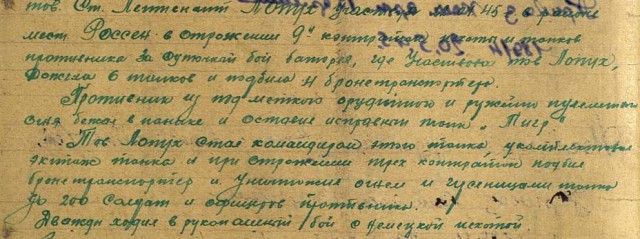 тов. Ст. Лейтенант Лопух участвуя 45 в районе
мест Россен в отражении 9и контратак пехоты и танков
противника За суточный бой батарея, где участвовал тов Лопух,
6 танков и подбила 4 бронетранспортера.
Противник из под меткого орудийного и ружейно пулеметного
огня бежал в панике и оставил исправный танк „Тигр"
Тов Лопух стал командиром этого танка укомплектовал
экипаж танка и при отражении трех контратак подбил
бронетранспортер и уничтожил огнем и гусеницами танка
до 200 солдат и офицеров противника.
Дважды ходил в рукопашный бой с немецкой пехотой.